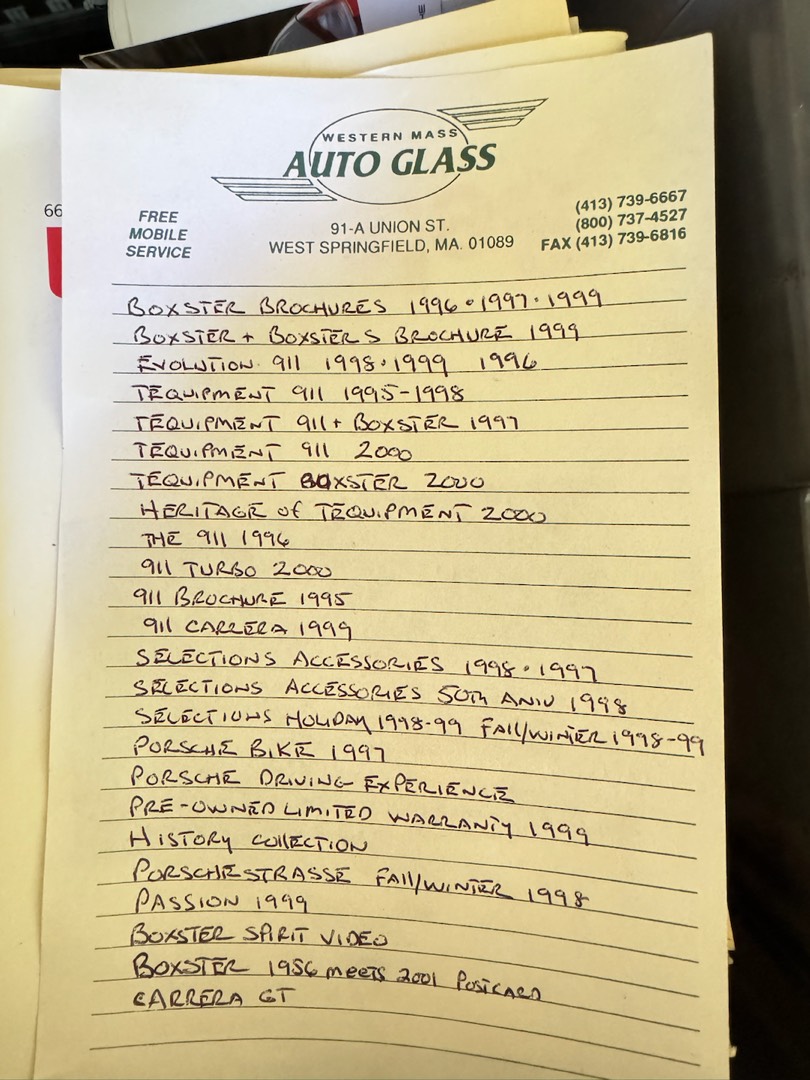 WESTERN MASS
AUTO GLASS
66
FREE
MOBILE
SERVICE
91-A UNION ST.
WEST SPRINGFIELD, MA. 01089
(413) 739-6667
(800) 737-4527
FAX (413) 739-6816
BOXSTER BROCHURES 1996 • 1997 • 1999
BOXSTER + BOXSTER S BROCHURE 1999
EVOLUTION 911 1998 • 1999 1996
TEQUIPMENT 911 1995-1998
TEQUIPMENT 911 + BOXSTER 1997
TEQUIPMENT 911 2000
TEQUIPMENT BOXSTER 2000
HERITAGE of TEQUIPMENT 2000
THE 911 1996
911 TURBO 2000
911 BROCHURE 1995
911 CARRERA 1999
SELECTIONS ACCESSORIES 1998 • 1997
SELECTIONS ACCESSORIES 50TH ANIV 1998
SELECTIONS HOLIDAY 1998-99 FAll/WINTER 1998-99
PORSCHE BIKE 1997
PORSCHE DRIVING EXPERIENCE
PRE-OWNED LIMITED WARRANTY 1999
HISTORY COLLECTION
PORSCHESTRASSE FAll/WINTER 1998
PASSION 1999
BOXSTER SPIRIT VIDEO
BOXSTER 1956 meets 2001 POSTCARD
CARRERA GT